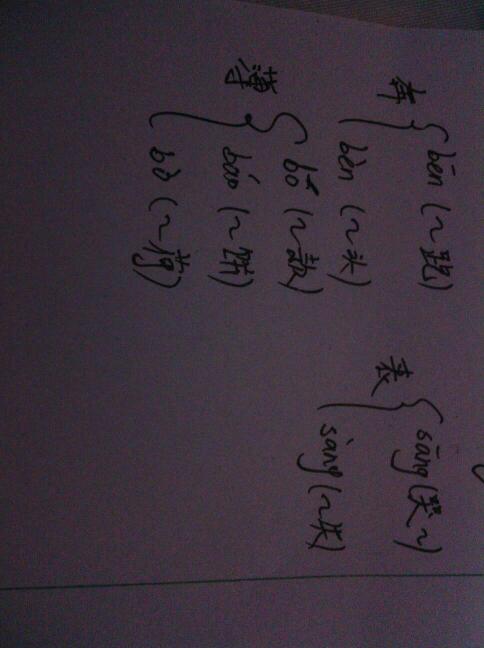 奔
bēn (~跑)
bèn (~头)
薄
bó (~款)
báo (~饼)
bò (~荷)
丧
sāng (哭~)
sàng (~失)